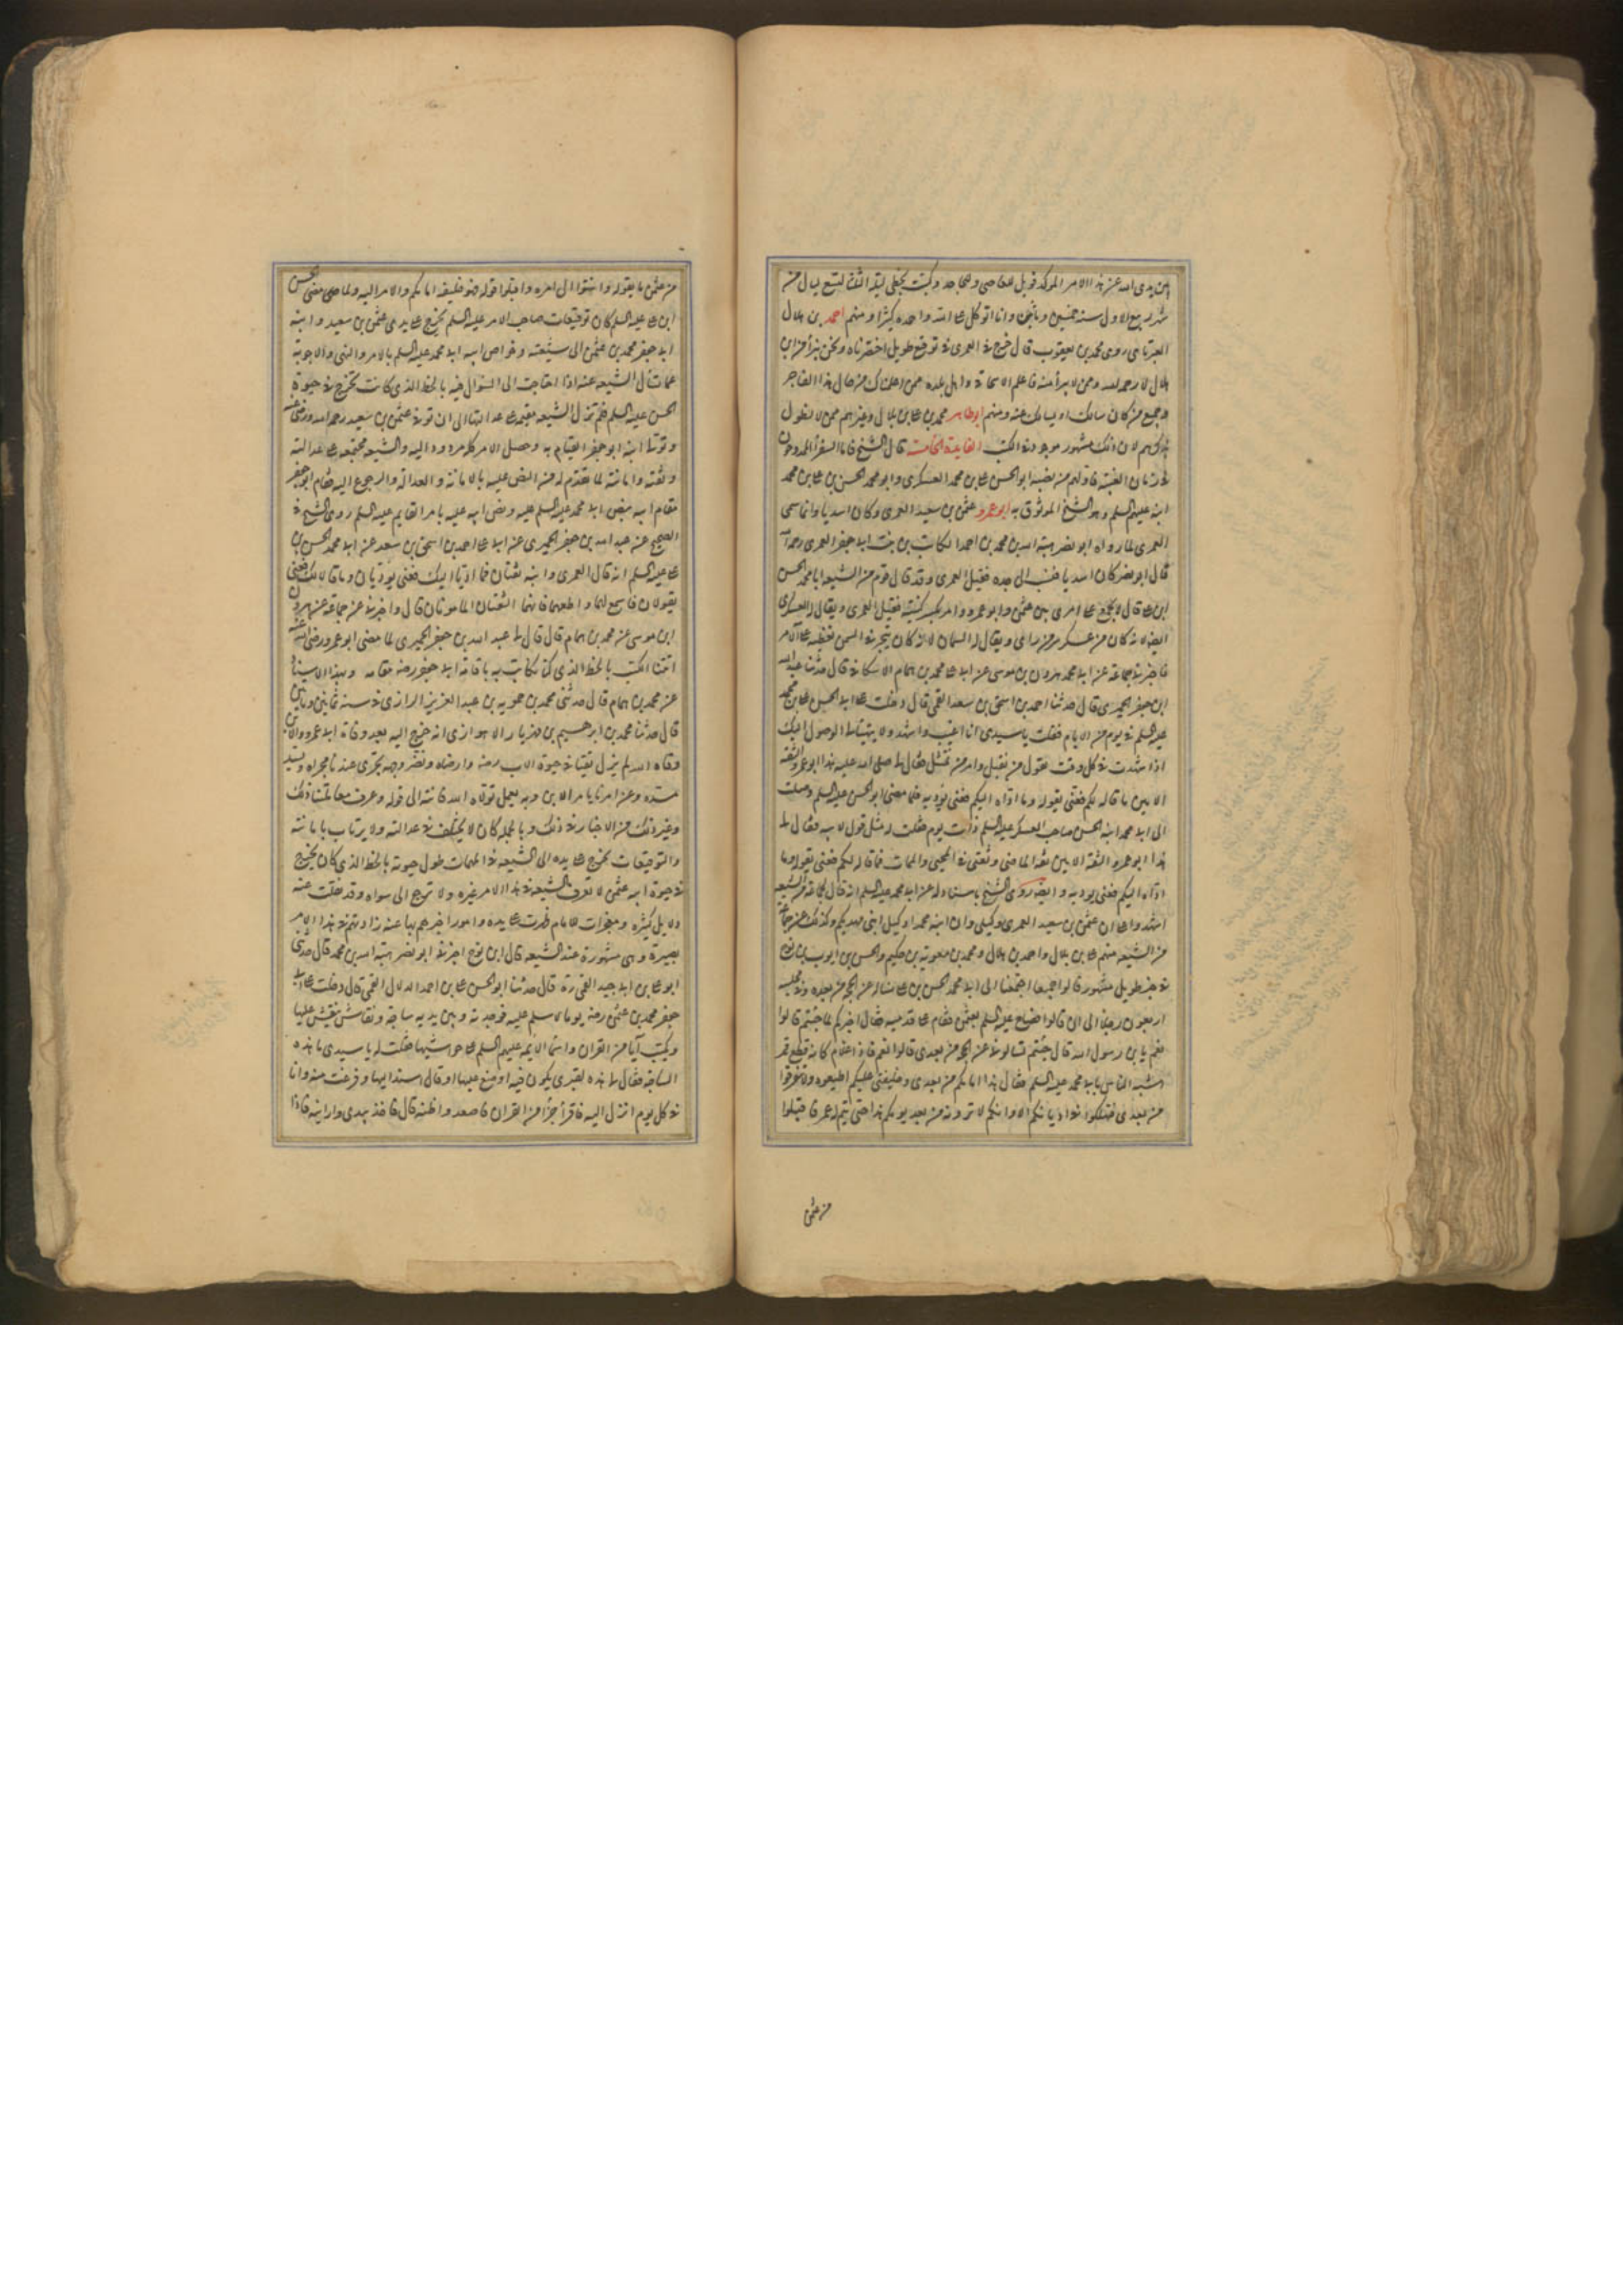 بين يدي الله عن هذا الامر الموكد فويل للعاصي وللجاحد وكتبت بخطي ليلة الثلثا لتسع ليال من
شهر ربيع الاول سنة خمسين ومأتين وانا اتوكل على الله واحمده كثيرا ومنهم احمد بن هلال
العبرتاي روى محمد بن يعقوب قال خرج الى العمرى في توقيع طويل اختصرناه ونحن نبرأ من ابن
هلال لا رحمه الله وممن لا يبرأ منه فاعلم الاسحاقي واهل بلده مما اعلمناك من حال هذا الفاجر
وجميع من كان سالك او يسالك عنه ومنهم ابو طاهر محمد بن علي بن بلال وغيرهم ممن لا نطول
بذكرهم لان ذلك مشهور موجود في الكتب الفايدة الخامسة قال الشيخ فاما السفرأ الممدوحون
في زمان الغيبة فاولهم من نصبه ابو الحسن علي بن محمد العسكرى وابو محمد الحسن بن علي بن محمد
ابنه عليهم السلم وهو الشيخ الموثوق به ابو عمرو عثمن بن سعيد العمرى وكان اسديا وانما سمى
العمرى لما رواه ابو نصر هبة الله بن محمد بن احمد الكاتب بن بنت ابي جعفر العمرى رحمه الله
قال ابو نصر كان اسديا فنسب الى جده فقيل العمرى وقد قال قوم من الشيعة ان ابا محمد الحسن
ابن علي قال لا يجمع على امرئ بين عثمن وابو عمرو وامر بكسر كنيته فقيل العمرى ويقال له العسكرى
ايضا لانه كان من عسكر سر من راى ويقال له السمان لانه كان يتجر في السمن تغطية على الامر
فاخبرني جماعة عن ابي محمد هرون بن موسى عن ابي علي محمد بن همام الاسكافي قال حدثنا عبد الله
ابن جعفر الحميرى قال حدثنا احمد بن اسحق بن سعد القمي قال دخلت على ابي الحسن علي بن محمد
عليه السلم في يوم من الايام فقلت يا سيدى انا اغيب واشهد ولا يتهيأ لي الوصول اليك
اذا شهدت في كل وقت فقول من نقبل وامر من نمتثل فقال لي صلى الله عليه هذا ابو عمرو الثقة
الامين ما قاله لكم فعني يقوله وما اداه اليكم فعني يؤديه فلما مضى ابو الحسن عليه السلم وصلت
الى ابي محمد ابنه الحسن صاحب العسكر عليه السلم ذات يوم فقلت له مثل قولي لابيه فقال لي
هذا ابو عمرو الثقة الامين ثقة الماضي وثقتي في المحيى والممات فما قاله لكم فعني يقوله وما
اداه اليكم فعني يوديه وايضا روى الشيخ باسناد له عن ابي محمد عليه السلم انه قال لجماعة من الشيعة
اشهدوا علي ان عثمن بن سعيد العمرى وكيلي وان ابنه محمدا وكيل ابني مهديكم وكذلك عن جماعة
من الشيعة منهم علي بن بلال واحمد بن هلال ومحمد بن معوية بن حكيم والحسن بن ايوب بن نوح
في خبر طويل مشهور قالوا جميعا اجتمعنا الى ابي محمد الحسن بن علي نساله عن الحجة من بعده وفي مجلسه
اربعون رجلا الى ان قالوا فصاح عليه السلم بعثمن فقام على قدميه فقال اخبركم لما جئتم قالوا
نعم يا بن رسول الله قال جئتم تسالوني عن الحجة من بعدى قالوا نعم فاذا غلام كانه قطع قمر
اشبه الناس بابي محمد عليه السلم فقال هذا امامكم من بعدى وخليفتي عليكم اطيعوه ولا تتفرقوا
من بعدى فتهلكوا في اديانكم الا وانكم لا ترونه من بعد يومكم هذا حتى يتم له عمر فاقبلوا
من عثمن
من عثمن ما يقوله وانتهوا الى امره واقبلوا قوله فهو خليفة امامكم والامر اليه ولما مضى الحسن
ابن علي عليه السلم كان توقيعات صاحب الامر عليه السلم تخرج على يدي عثمن بن سعيد وابنه
ابي جعفر محمد بن عثمن الى شيعته وخواص ابيه ابي محمد عليه السلم بالامر والنهي والاجوبة
عما تسأل الشيعة عنه اذا احتاجت الى السؤال فيه بالخط الذى كانت تخرج في حيوة
الحسن عليه السلم فلم تزل الشيعة مقيمة على عدالتهما الى ان توفي عثمن بن سعيد رحمه الله ورضي عنه
وتولى ابنه ابو جعفر القيام به وحصل الامر كله مردودا اليه والشيعة مجتمعة على عدالته
وثقته وامانته لما تقدم له من النص عليه بالامانة والعدالة والرجوع اليه فقام ابو جعفر
مقام ابيه بنص ابي محمد عليه السلم عليه ونص ابيه عليه بامر القايم عليه السلم روى الشيخ في
الصحيح عن عبد الله بن جعفر الحميرى عن ابي علي احمد بن اسحق بن سعد عن ابي محمد الحسن بن
علي عليه السلم انه قال العمرى وابنه ثقتان فما اديا اليك فعني يؤديان وما قالا لك فعني
يقولان فاسمع لهما واطعهما فانهما الثقتان المامونان قال واخبرني عن جماعة عن هرون
ابن موسى عن محمد بن همام قال قال لي عبد الله بن جعفر الحميرى لما مضى ابو عمرو رضي الله عنه
اتتنا الكتب بالخط الذى كنا نكاتب به باقامة ابي جعفر رضه مقامه وبهذا الاسناد
عن محمد بن همام قال حدثني محمد بن حمويه بن عبد العزيز الرازى في سنة ثمانين ومأتين
قال حدثنا محمد بن ابرهيم بن مهزيار الاهوازى انه خرج اليه بعد وفاة ابي عمرو والابن
وقاه الله لم يزل ثقتنا في حيوة الاب رضه وارضاه ونضر وجهه يجرى عندنا مجراه ويسد
مسده وعن امرنا يامر الابن وبه يعمل تولاه الله فانته الى قوله وعرف معاملتنا ذلك
وغير ذلك من الاخبار في ذلك وبالجملة كان لا يختلف في عدالته ولا يرتاب بامانته
والتوقيعات تخرج على يده الى الشيعة في المهمات طول حيوته بالخط الذى كان يخرج
في حيوة ابيه عثمن لا تعرف الشيعة في هذا الامر غيره ولا ترجع الى سواه وقد نقلت عنه
دلايل كثيرة ومعجزات الامام ظهرت على يده وامور اخبرهم بها عنه زادتهم في هذا الامر
بصيرة وهي مشهورة عند الشيعة قال ابن نوح اخبرني ابو نصر هبة الله بن محمد قال حدثني
ابو علي بن ابي جيد القمي ره قال حدثنا ابو الحسن علي بن احمد الدلال القمي قال دخلت على ابي
جعفر محمد بن عثمن رضه يوما لاسلم عليه فوجدته وبين يديه ساجة ونقاش ينقش عليها
ويكتب آيا من القران واسما الايمة عليهم السلم على حواشيها فقلت له يا سيدى ما هذه
الساجة فقال لي هذه لقبرى يكون فيه اوضع عليها او قال اسند اليها وفرغت منه وانا
في كل يوم انزل اليه فاقرأ جزأ من القران فاصعد واظنه قال فاخذ بيدى وارانيه فاذا